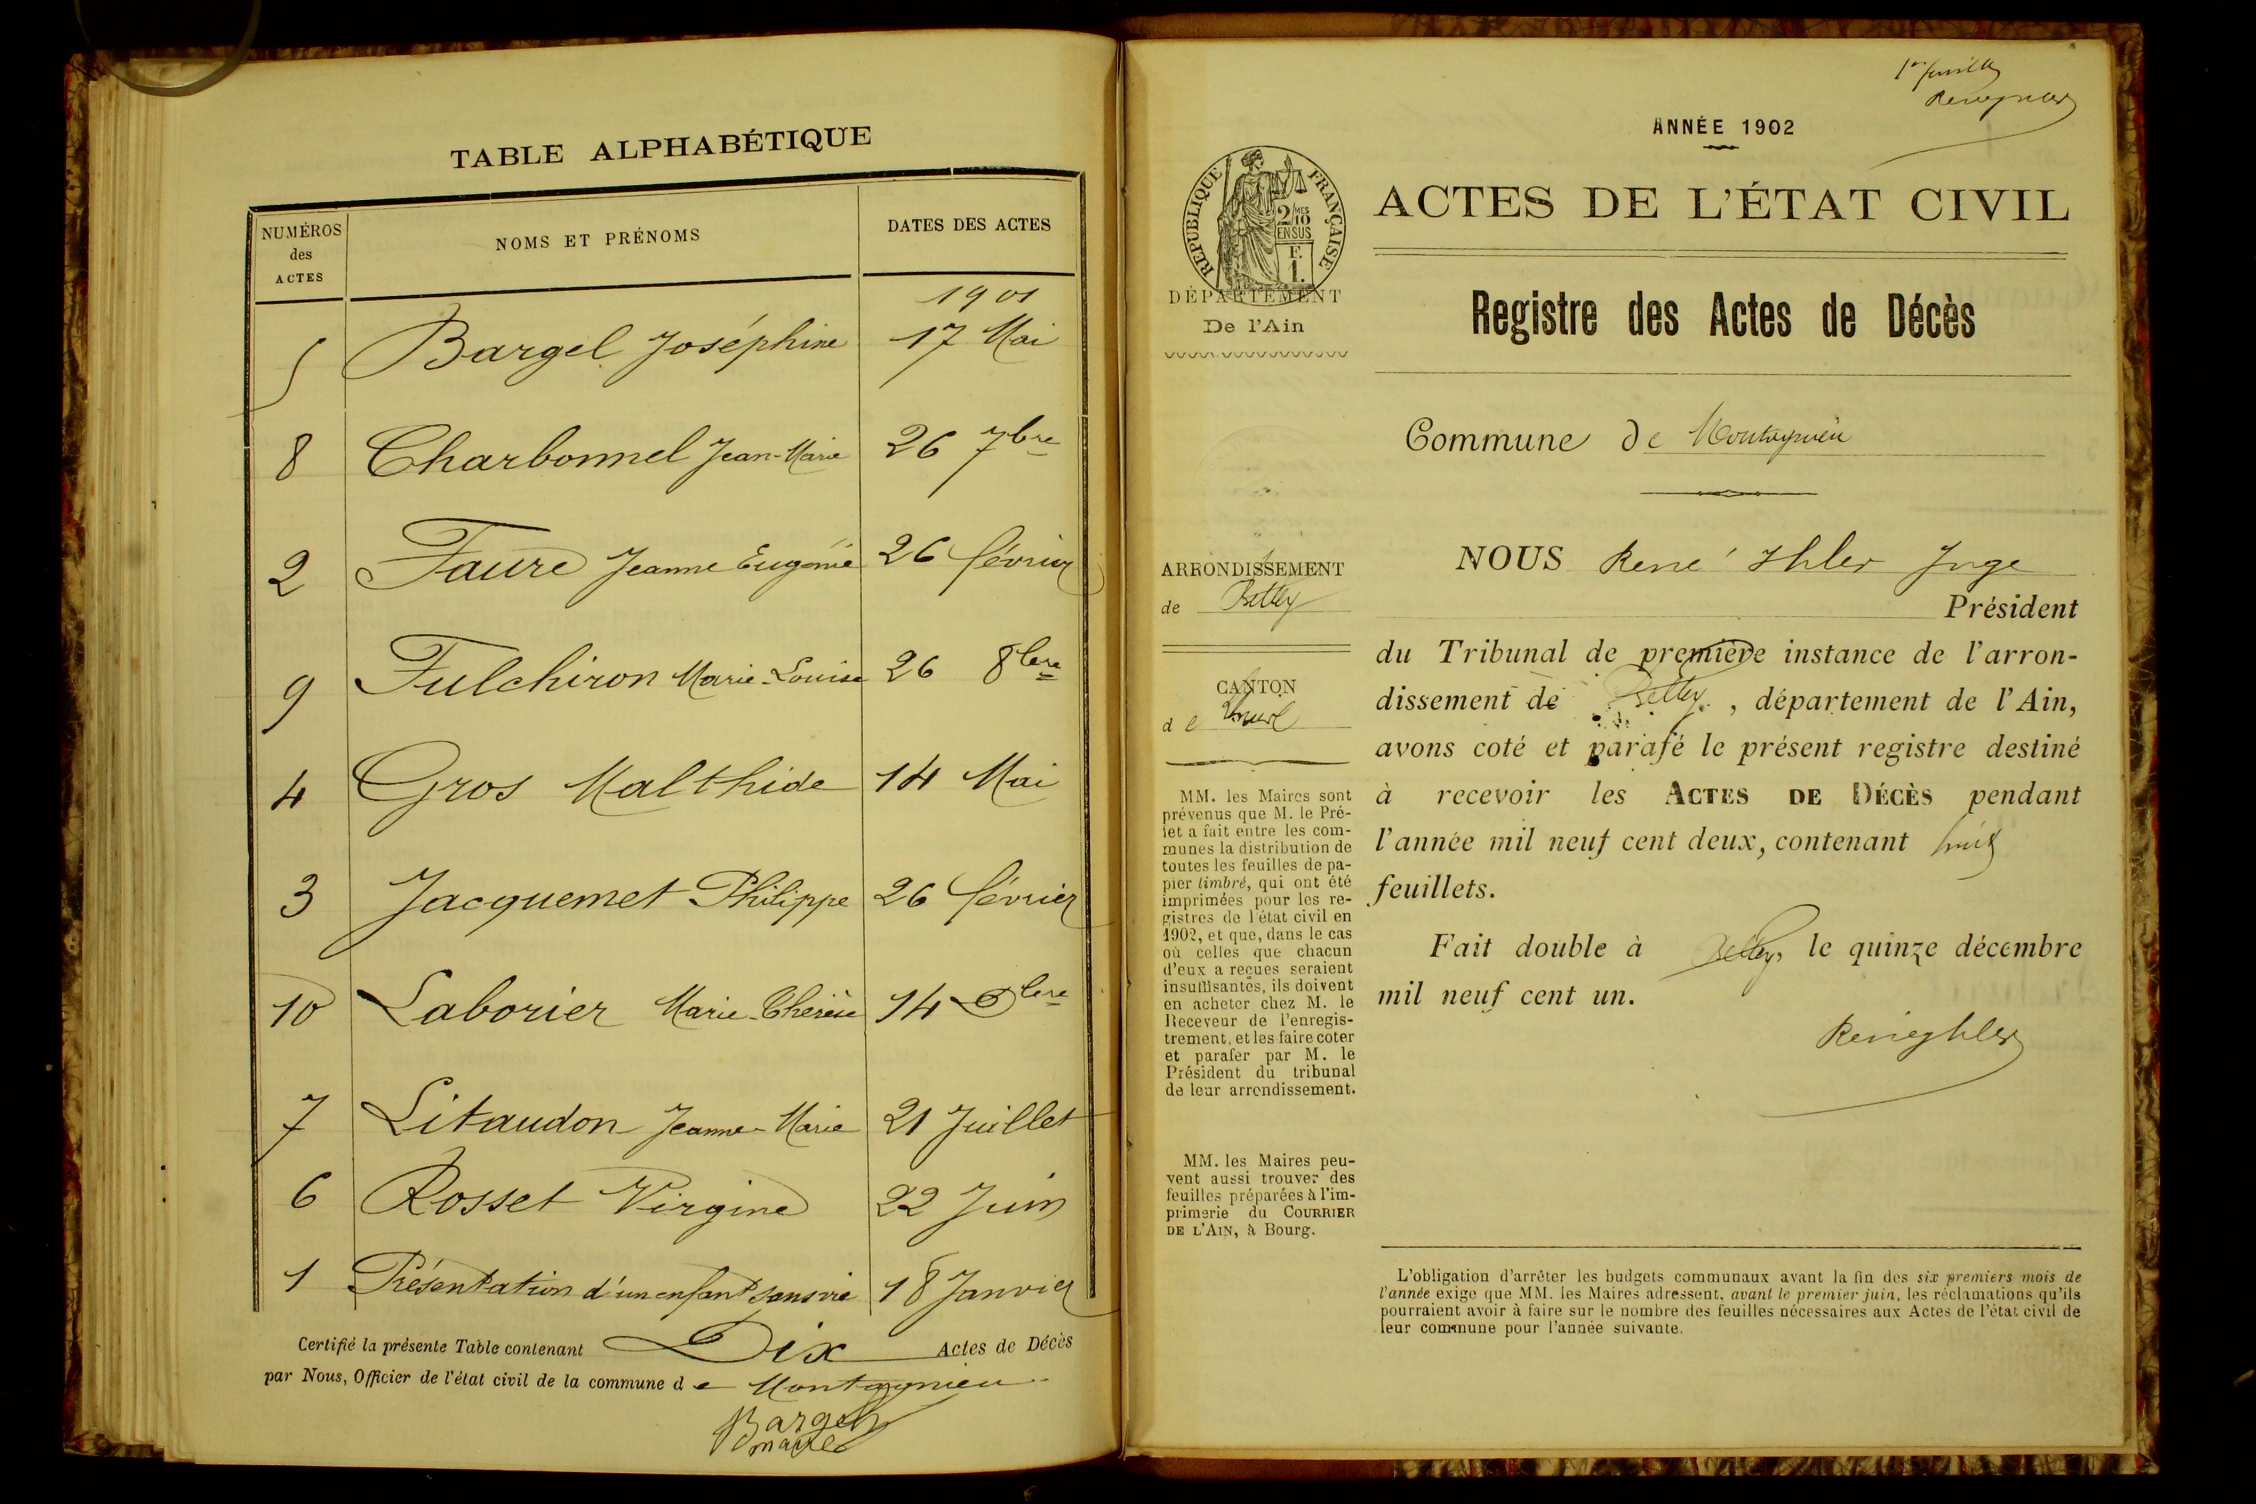 TABLE ALPHABÉTIQUE
NUMÉROS
des
ACTES
NOMS ET PRÉNOMS
DATES DES ACTES
1901
5 Bargel Joséphine 17 Mai
8 Charbonnel Jean-Marie 26 7bre
2 Faure Jeanne Eugénie 26 février
9 Fulchiron Marie-Louise 26 8bre
4 Gros Malthide 14 Mai
3 Jacquemet Philippe 26 février
10 Laborier Marie-Thérèse 14 Dbre
7 Litaudon Jeanne-Marie 21 Juillet
6 Rosset Virgine 22 Juin
1 Présentation d'un enfant sans vie 18 Janvier
Certifié la présente Table contenant Dix Actes de Décès
par Nous, Officier de l'état civil de la commune de Montagnieu
Bargel
maire
1er feuillet
ANNÉE 1902
RÉPUBLIQUE FRANÇAISE
2/10MES
EN SUS
F.
1.
ACTES DE L'ÉTAT CIVIL
DÉPARTEMENT
De l'Ain
Registre des Actes de Décès
Commune de Montagnieu
ARRONDISSEMENT
de Belley
CANTON
de
MM. les Maires sont
prévenus que M. le Pré-
fet a fait entre les com-
munes la distribution de
toutes les feuilles de pa-
pier timbré, qui ont été
imprimées pour les re-
gistres de l'état civil en
1902, et que, dans le cas
où celles que chacun
d'eux a reçues seraient
insuffisantes, ils doivent
en acheter chez M. le
Receveur de l'enregis-
trement, et les faire coter
et parafer par M. le
Président du tribunal
de leur arrondissement.
MM. les Maires peu-
vent aussi trouver des
feuilles préparées à l'im-
primerie du COURRIER
DE L'AIN, à Bourg.
NOUS René Ihler Juge
Président
du Tribunal de première instance de l'arron-
dissement de Belley, département de l'Ain,
avons coté et parafé le présent registre destiné
à recevoir les ACTES DE DÉCÈS pendant
l'année mil neuf cent deux, contenant huit
feuillets.
Fait double à Belley, le quinze décembre
mil neuf cent un.
René Ihler
L'obligation d'arrêter les budgets communaux avant la fin des six premiers mois de
l'année exige que MM. les Maires adressent, avant le premier juin, les réclamations qu'ils
pourraient avoir à faire sur le nombre des feuilles nécessaires aux Actes de l'état civil de
leur commune pour l'année suivante.